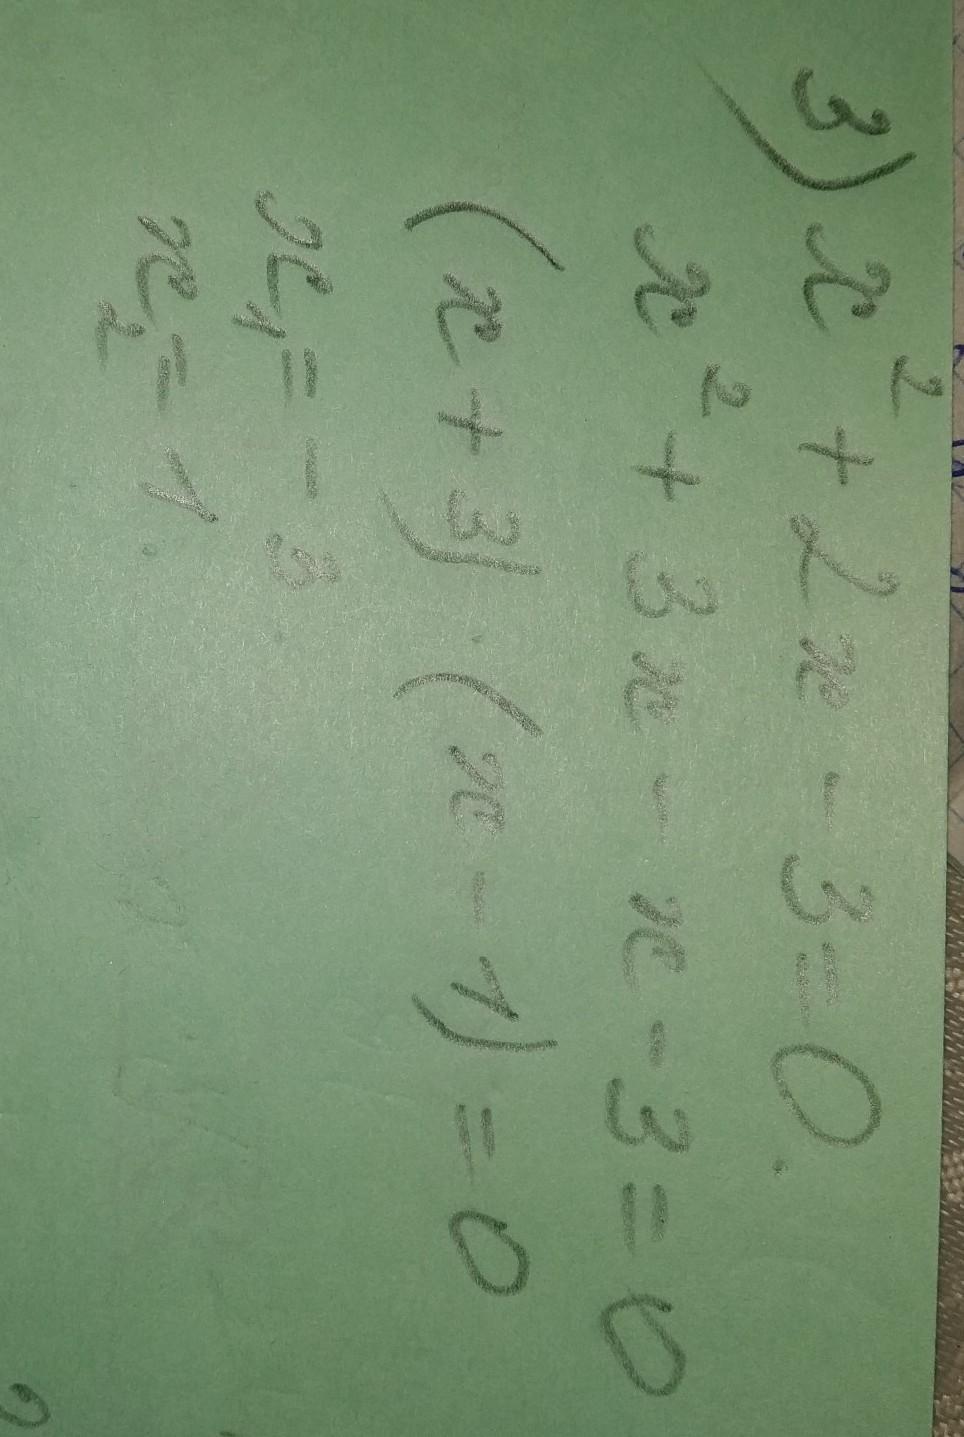 3) x² + 2x - 3 = 0.
x² + 3x - x - 3 = 0
(x + 3) · (x - 1) = 0
x₁ = - 3
x₂ = 1